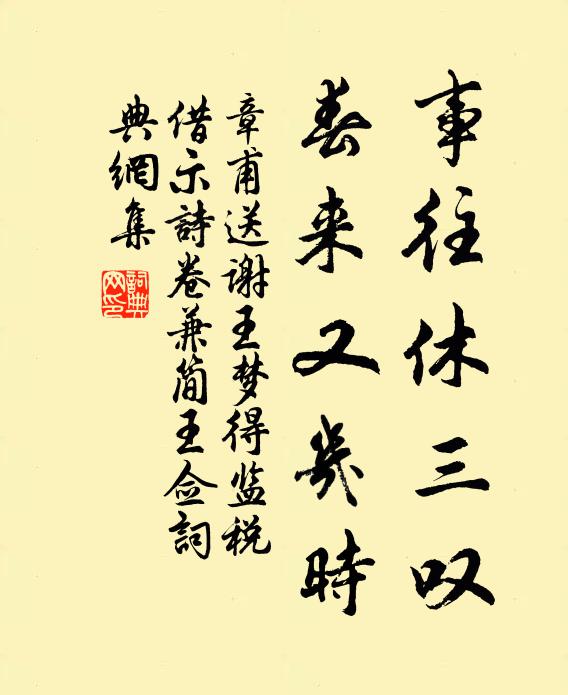 事往休三叹
春来又几時
章甫送谢王梦得监税
借示詩卷兼简王佥詞
典網集
詞典网印